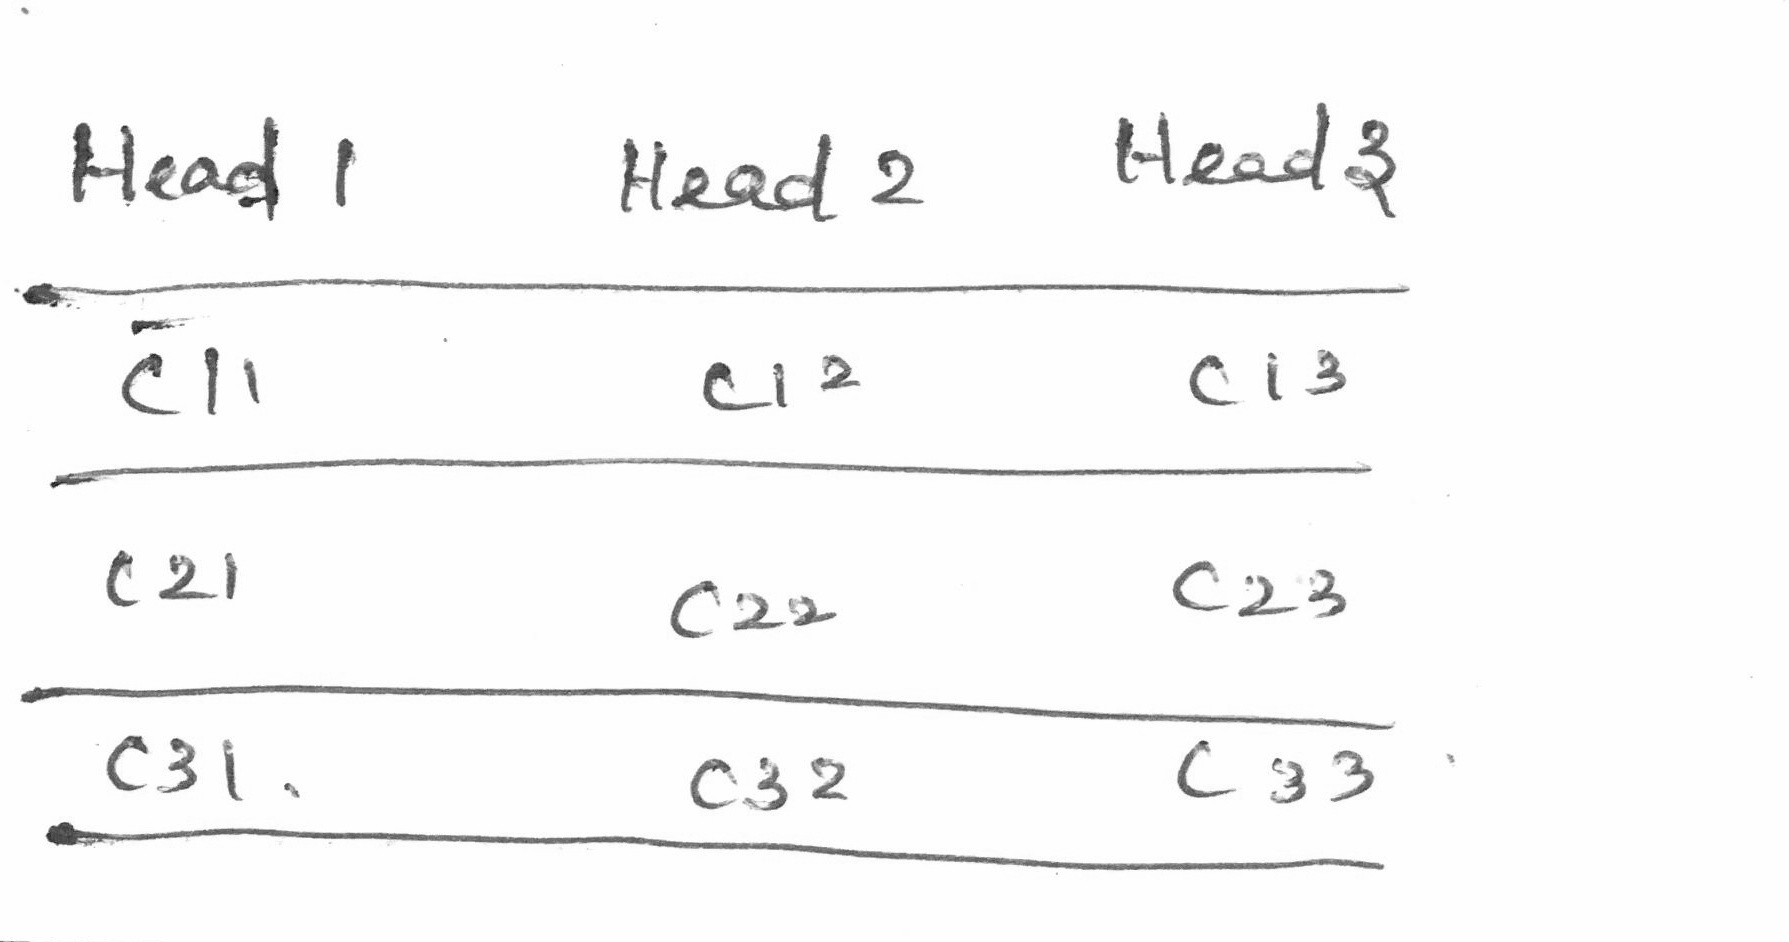 Head 1 Head 2 Head 3
C11 C12 C13
C21 C22 C23
C31. C32 C33